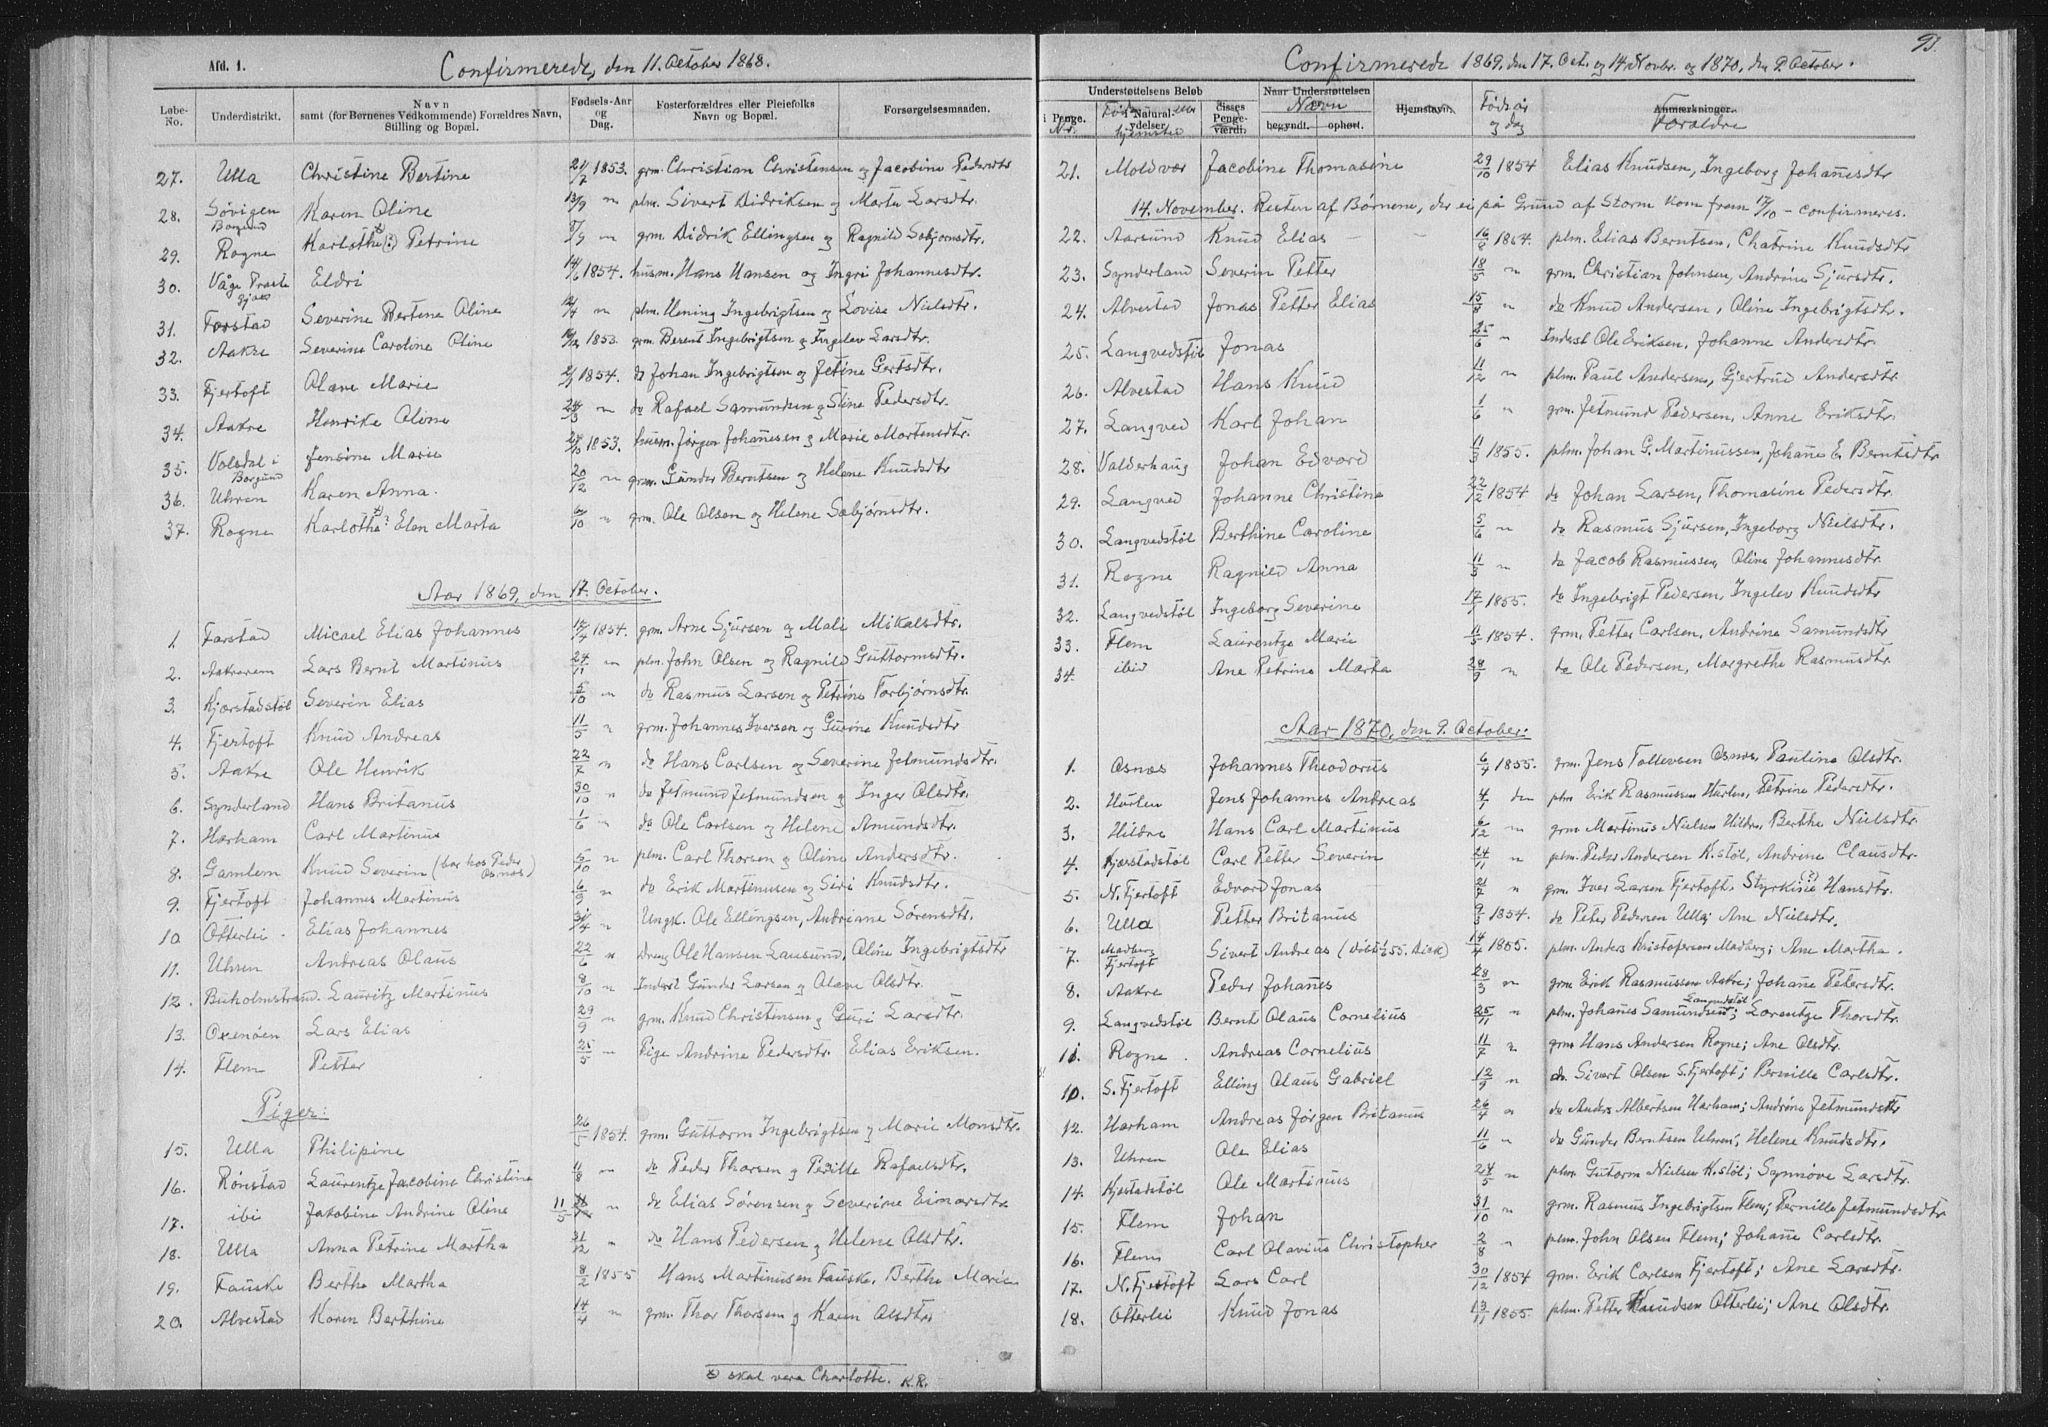 Afd. 1.
Confirmerede, den 11. October 1868.
Løbe-No. Underdistrikt. Navn samt (for Børnenes Vedkommende) Forældres Navn, Stilling og Bopæl. Fødsels-Aar og Dag. Fosterforældres eller Pleiefolks Navn og Bopæl. Forsørgelsesmaaden.
27. Ulla Christine Bertine 21/7 1853. grm. Christian Christensen og Jacobine Pedersdtr
28. Søvigen Borgund Karen Oline 13/9 " plm. Sivert Didriksen og Marta Larsdtr.
29. Rogne Karlothe Petrine 8/9 " grm. Didrik Ellingsen og Ragnild Sæbjørnsdtr.
30. Våge Eldri 14/6 1854. husm. Hans Hansen og Ingri Johannesdtr.
31. Farstad Severine Bertene Oline " plm. Hening Ingebrigtsen og Lovise Nielsdtr.
32. Aakre Severine Caroline Oline 1853. grm. Berent Ingebrigtsen og Ingelev Larsdtr.
33. Fjertoft Olave Marie 1854. do Johan Ingebrigtsen og Jetine Gertsdtr.
34. Aakre Henrike Oline 24/3 " do Rafael Samundsen og Stine Pedersdtr.
35. Volsdal i Borgund Jensine Marie 1853. husm. Jørgen Johannesen og Marie Mortensdtr.
36. Uhren Karen Anna. 20/12 " grm. Gunder Berntsen og Helene Knudsdtr
37. Rogne Karlothe Elen Marta 6/10 " grm. Ole Olsen og Helene Sæbjørnsdtr.
Aar 1869, den 17. October.
1. Farstad Micael Elias Johannes 1854. grm. Arne Sjursen og Mali Mikalsdtr.
2. Aakrerem Lars Bernt Martinus 24/11 " plm. John Olsen og Ragnild Guttormsdtr.
3. Kjærstadstøl Severin Elias 5/10 " do Rasmus Larsen og Petrine Torbjørnsdtr
4. Fjertoft Knud Andreas 11/5 " grm. Johannes Iversen og Gurine Knudsdtr
5. Aakre Ole Henrik 22/7 " do Hans Carlsen og Severine Jetmundsdtr.
6. Synderland Hans Britanus 30/10 " do Jetmund Jetmundsen og Inger Olsdtr.
7. Harham Carl Martinus 1/6 " do Ole Carlsen og Helene Amundsdtr.
8. Gamlem Knud Severin (bor hos Peder Osnæs) 5/10 " plm. Carl Thorsen og Oline Andersdtr.
9. Fjertoft Johannes Martinus 6/9 " do Erik Martinusen og Siri Knudsdtr.
10 Otterlei Elias Johannes 31/4 " Ungk. Ole Ellingsen, Andriane Sørensdtr.
11. Uhren Andreas Olaus 22/6 " Dreng Ole Hansen Lausund, Oline Ingebrigtsdtr
12. Buholmstrand. Lauritz Martinus 8/10 " Inderst Gunder Larsen og Olave Olsdtr.
13. Oxenøen Lars Elias 29/9 " grm. Knud Christensen og Guri Larsdtr.
14. Flem Petter 25/5 " Pige Andrine Pedersdtr. Elias Eriksen.
Piger:
15. Ulla Philipine 26/5 1854. grm. Guttorm Ingebrigtsen og Marie Monsdtr.
16. Rønstad Laurentze Jacobine Christine 11/8 " do Peder Thorsen og Pernille Rafaelsdtr.
17. ibi Jakobine Andrine Oline 11/5 " do Elias Sørensen og Severine Einarsdtr
18. Ulla Anna Petrine Martha 31/12 " do Hans Pedersen og Helene Olsdtr.
19. Fauske Berthe Martha 8/2 1855 Hans Martinusen Fauske. Berthe Marie
20. Alvestad Karen Berthine 14/4 " grm. Thor Thorsen og Karen Olsdtr.
skal vera Charlotte. K.R.
93.
Confirmerede 1869, den 17. Oct. og 14. Novbr. og 1870, den 9. October.
Understøttelsens Beløb i Penge. i Natural-ydelser. Disses Penge-værdi. Naar Understøttelsen begyndt. ophørt. Hjemstavn. Anmærkninger.
Nr. Fød eller hjemsted Navn Føds aar og dag Foraldre
21. Moldvær Jacobine Thomasine 29/10 1854 Elias Knudsen, Ingeborg Johannesdtr
14. November. Resten af Børnene, der ei på Grund af Storm kom frem 17/10 - confirmeres.
22. Aarsund Knud Elias 16/6 1854. plm. Elias Berntsen, Chatrine Knudsdtr
23. Synderland Severin Petter 18/5 " grm. Christian Johnsen, Andrine Sjursdtr
24. Alvestad Jonas Petter Elias 15/8 " do Knud Andersen, Oline Ingebrigtsdtr.
25. Langvedstøl Jonas 25/6 " Inderst Ole Eriksen, Johanne Andersdtr.
26. Alvestad Hans Knud 11/12 " plm. Paul Andersen, Gjertrud Andersdtr.
27. Langved Karl Johan 1/6 " grm. Jetmund Pedersen, Anne Eriksdtr.
28. Valderhaug Johan Edvard 11/3 1855. plm. Johan G. Martinussen, Johane E. Berntsdtr
29. Langved Johanne Christine 22/12 1854 do Johan Larsen, Thomasine Pedersdtr.
30. Langvedstøl Berthine Caroline 5/6 " do Rasmus Sjursen, Ingeborg Nielsdtr.
31. Rogne Ragnild Anna 11/3 " do Jacob Rasmussen, Oline Johannesdtr.
32. Langvedstøl Ingeborg Severine 17/1 1855. do Ingebrigt Pedersen, Ingelev Knudsdtr
33. Flem Laurentze Marie 11/5 1854. grm. Petter Carlsen, Andrine Samundsdtr
34. ibid Ane Petrine Marta 28/9 " do Ole Pedersen, Margrethe Rasmusdtr.
Aar 1870, den 9. October:
1. Osnæs Johannes Theodorus 6/4 1855. grm. Jens Tollevsen Osnæs, Pauline Olsdtr.
2. Hurlen Jens Johannes Andreas 4/1 den plm Erik Rasmussen Hurlen, Petrine Pedersdtr.
3. Hildre Hans Carl Martinus 6/12 " grm Martinus Nielsen Hildre, Berthe Nielsdtr
4. Kjærstadstøl Carl Petter Severin 24/11 " plm. Peder Andersen K.støl, Andrine Clausdtr.
5. N. Fjertoft Edvard Jonas 21/7 " grm. Iver Larsen Fjertoft. Styrkine (?) Hansdtr.
6. Ulla Petter Britanus 9/3 1854. do Peter Pedersen Ulla; Ane Nielsdtr.
7. Madberg Fjertoft Sivert Andreas 14/4 1855. plm. Anders Kristofersen Madberg; Ane Martha.
8. Aakre Peder Johanes 28/3 " grm Erik Rasmussen Aakre; Johane Petersdtr.
9. Langvedstøl Bernt Olaus Cornelius 25/11 " plm. Johanes Samundsen Langvedstøl; Lorentze Thorsdtr.
11. Rogne Andreas Cornelius 11/7 " grm Hans Andersen Rogne; Ane Olsdtr.
10. S. Fjertoft Elling Olaus Gabriel 12/9 " do. Sivert Olsen S. Fjertoft; Pernille Carlsdtr.
12. Harham Andreas Jørgen Britanus 26/4 " do Anders Albertsen Harham; Andrine Jetmundsdtr
13. Uhren Ole Elias 11/6 " do Gunder Berntsen Uhren, Helene Knudsdtr.
14. Kjerstadstøl Ole Martinus 24/5 " plm. Gutorm Nielsen K.støl; Synnøve Larsdtr.
15. Flem Johan 31/10 " grm. Rasmus Ingebrigtsen Flem; Pernille Jetmundsdtr
16. Flem Carl Olavius Christopher 2/8 " plm. John Olsen Flem; Johane Carlsdtr.
17. N. Fjertoft Lars Carl 30/12 1854 grm. Erik Carlsen Fjertoft; Ane Larsdtr.
18. Otterlei Knud Jonas 13/11 1855 plm. Petter Knudsen Otterlei; Ane Olsdtr.